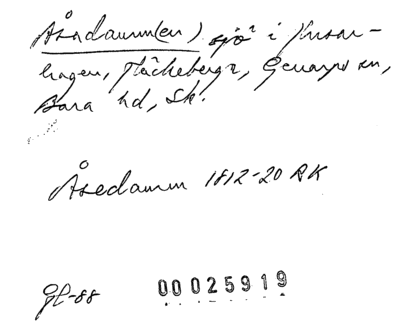 Åsadamm(en) sjö² i Husar-
hagen, Häckeberga, Genarps sn,
Bara hd, Sk.
Åsedamm 1812-20 RK
GP-88 00025919